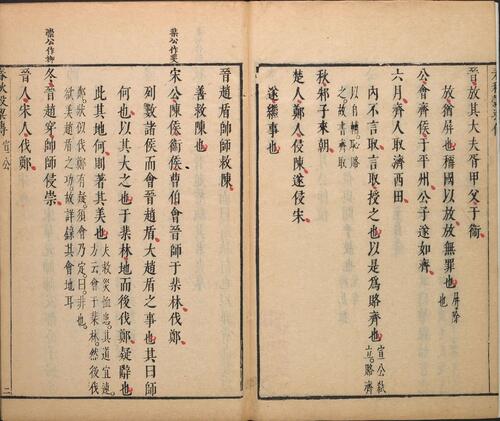 晉放其大夫胥甲父于衛
放猶屏也稱國以放放無罪也屏除
也
公會齊侯于平州公子遂如齊
六月齊人取濟西田
內不言取言取授之也以是爲賂齊也宣公弒
立賂齊
以自輔恥賂
之故書齊取
秋邾子來朝
楚人鄭人侵陳遂侵宋
遂繼事也
晉趙盾帥師救陳
善救陳也
棐公作斐
宋公陳侯衛侯曹伯會晉師于棐林伐鄭
列數諸侯而會晉趙盾大趙盾之事也其曰師
何也以其大之也于棐林地而後伐鄭疑辭也
此其地何則著其美也夫救災恤患其道宜速
方云會于棐林然後伐
鄭狀似伐鄭有疑須會乃定曰非也
欲美趙盾之功故詳錄其會地耳
崇公作柳
冬晉趙穿帥師侵崇
晉人宋人伐鄭
宣公
二